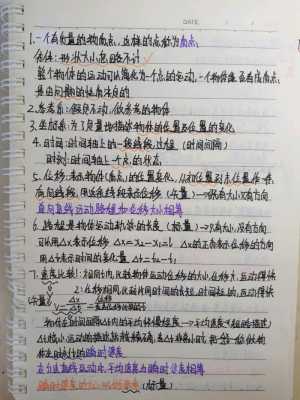 DATE
1. 一个有质量的物质点, 这样的点称为质点,
条件: 形状大小忽略不计
整个物体的运动可以简化为一个点的运动, 一个物体能否看成质点,
是由问题的性质决定的
2. 参考系: 假定不动, 做参考的物体
3. 坐标系: 为了定量地描述物体的位置及位置的变化
4. 时间: 时间轴上的一段线段, 过程 (时间间隔)
时刻: 时间轴上一个点的状态
5. 位移: 表示物体(质点)的位置变化, 从初位置到末位置作一条
有向线段, 用这条线段表示位移 (矢量) → 既有大小又有方向
单向直线运动路程和位移大小相等
6. 路程是物体运动轨迹的长度 (标量) → 只有大小, 没有方向
可以用△x表示位移 △x=x₂-x₁ △x的正负表示位移的方向
用△t表示时间的变化量 △t=t₂-t₁
7. 速度比较1: 相同时间比较物体运动位移的大小, 位移大, 运动得快
2: 位移相同比较所用时间的长短, 时间短的, 运动得快
物体在时间间隔△t内的平均快慢程度 → 平均速度 (粗略描述)
△t越小运动的描述就越精确, 若△t非常小时, 就
体在时刻t的瞬时速度
在匀速直线运动中, 平均速度与瞬时速度相等
瞬时速度的大小叫做速率 (标量)